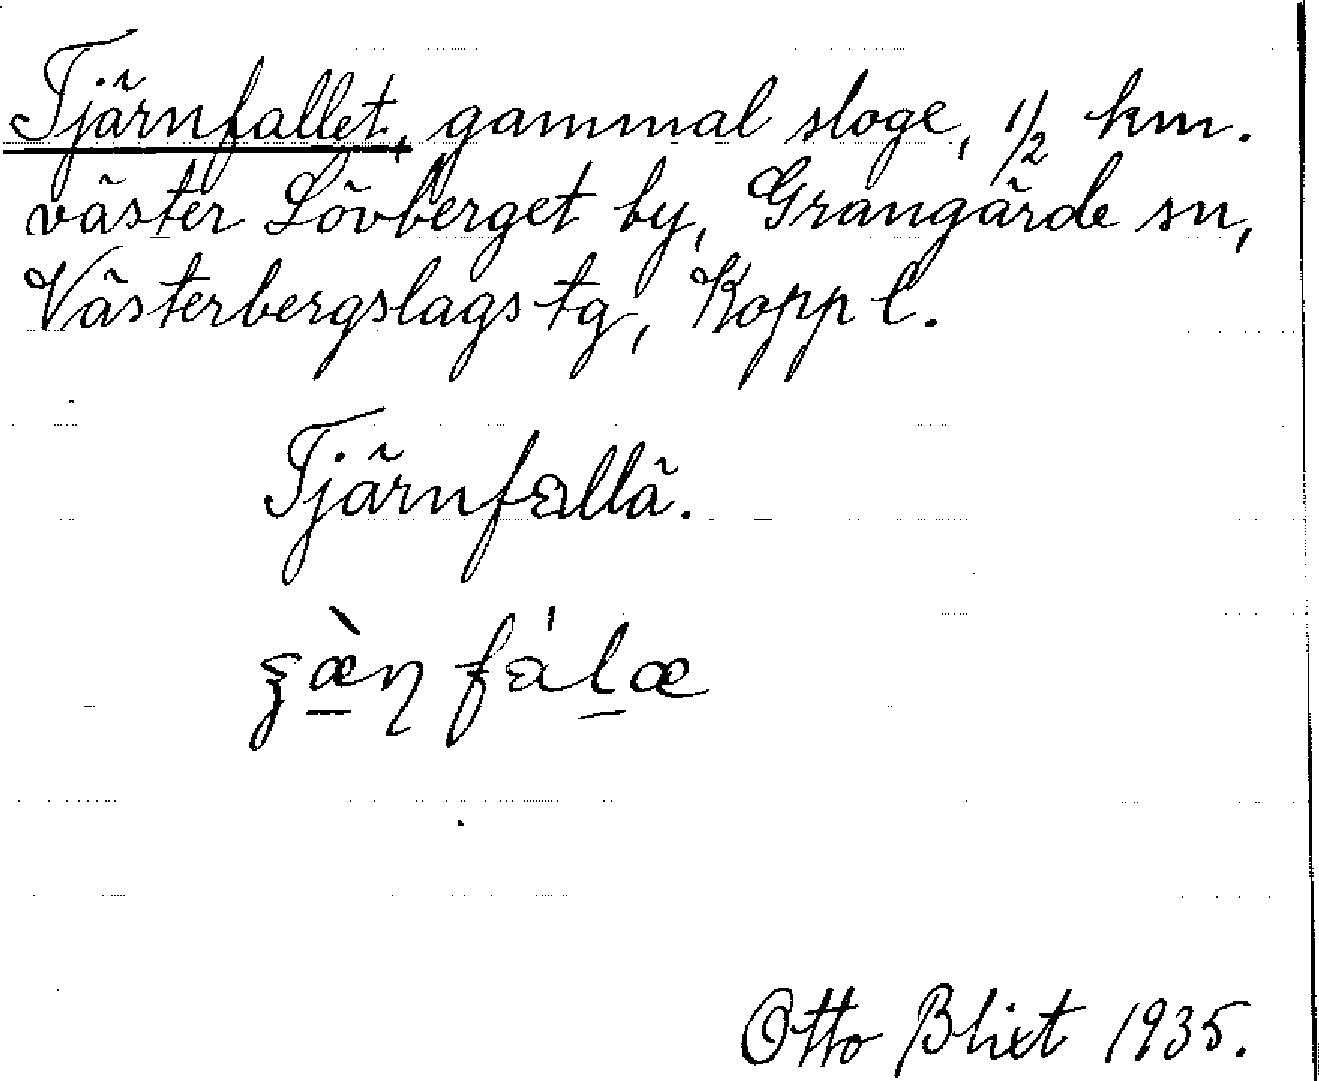 Tjärnfallet, gammal sloge, 1/2 km.
väster Lövberget by, Grangärde sn,
Västerbergslags tg, Kopp l.
Tjärnfallä.
Otto Blixt 1935.